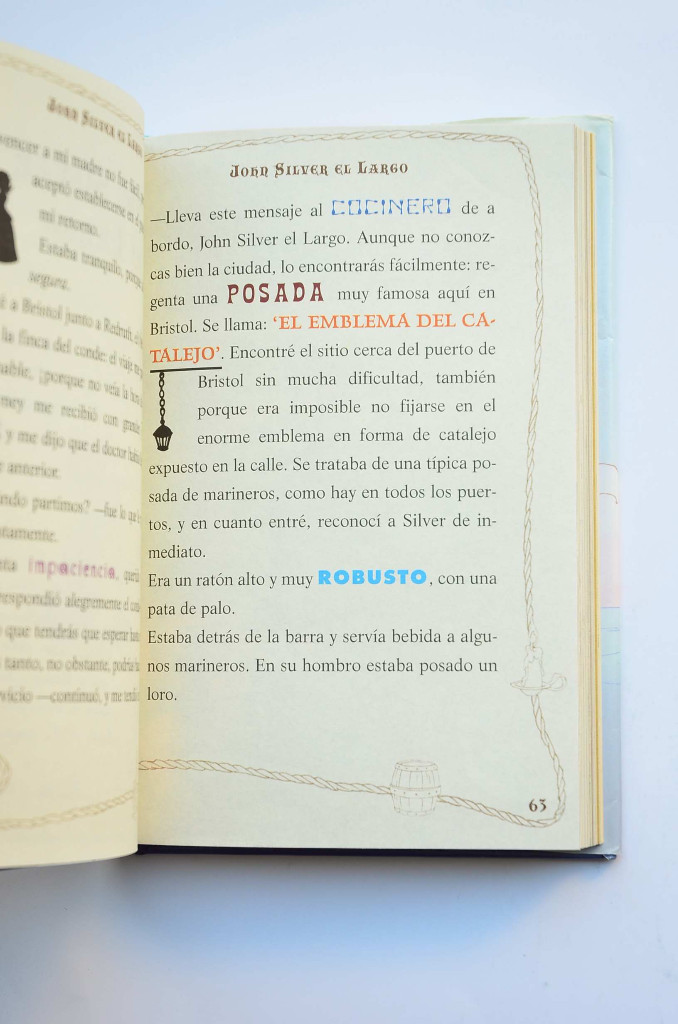 John Silver el Largo
a mi madre no fue
aceptó establecerse en el
mi retorno.
Estaba tranquilo,
segura.
a Bristol junto a Redruth, el
la finca del conde: el viaje
¡porque no veía la hora
me recibió con
y me dijo que el doctor
anterior.
partimos? —fue lo que
impaciencia,
respondió alegremente el
que tendrás que esperar
tanto, no obstante, podría
—continuó, y me
John Silver el Largo
—Lleva este mensaje al COCINERO de a
bordo, John Silver el Largo. Aunque no conoz-
cas bien la ciudad, lo encontrarás fácilmente: re-
genta una POSADA muy famosa aquí en
Bristol. Se llama: ‘EL EMBLEMA DEL CA-
TALEJO’. Encontré el sitio cerca del puerto de
Bristol sin mucha dificultad, también
porque era imposible no fijarse en el
enorme emblema en forma de catalejo
expuesto en la calle. Se trataba de una típica po-
sada de marineros, como hay en todos los puer-
tos, y en cuanto entré, reconocí a Silver de in-
mediato.
Era un ratón alto y muy ROBUSTO, con una
pata de palo.
Estaba detrás de la barra y servía bebida a algu-
nos marineros. En su hombro estaba posado un
loro.
63